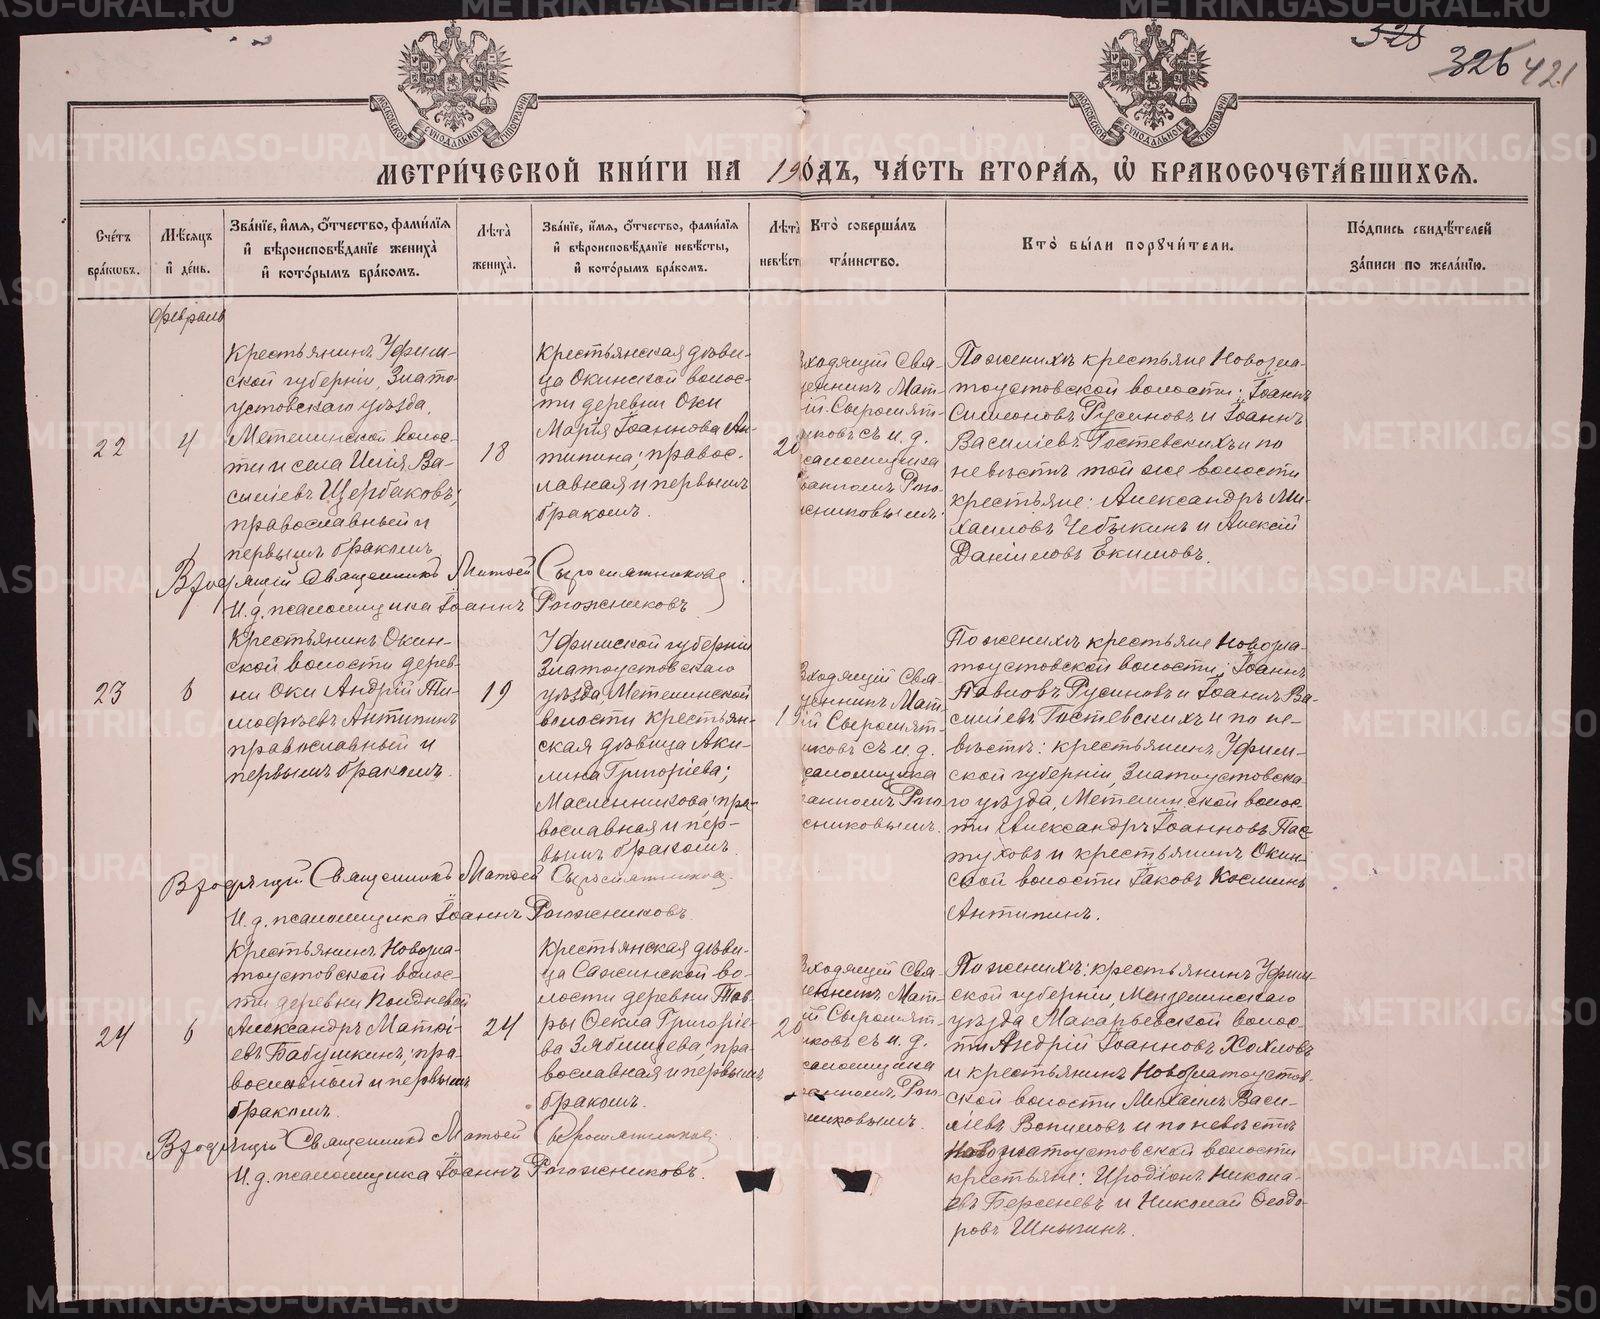 328
326 421
МОСКОВСКОЙ СѴНОДАЛЬНОЙ ТИПОГРАФІИ
МОСКОВСКОЙ СѴНОДАЛЬНОЙ ТИПОГРАФІИ
МЕТРИ́ЧЕСКОЙ КНИ́ГИ НА 19 ГО́ДЪ, ЧА́СТЬ ВТОРА́Я, Ѡ БРАКОСОЧЕТА́ВШИХСЯ.
Сче́тъ бра́кѡвъ.
Мѣ́сяцъ и҆ де́нь.
Зва́нїе, и҆́мя, ѻ҆́тчество, фами́лїя и҆ вѣроисповѣ́данїе жениха̀ и҆ кото́рымъ бра́комъ.
Лѣ́та̀ жениха̀.
Зва́нїе, и҆́мя, ѻ҆́тчество, фами́лїя и҆ вѣроисповѣ́данїе невѣ́сты, и҆ кото́рымъ бра́комъ.
Лѣ́та̀ невѣ́ст
Кто̀ соверша́лъ та́инство.
Кто̀ бы́ли порꙋчи́тели.
По́дпись свидѣ́телей за́писи по жела́нїю.
Февраль
22
4
Крестьянинъ Уфим-
ской губерніи, Злато-
устовскаго уѣзда,
Метелинской волос-
ти и села Илія Ва-
силіевъ Щербаковъ;
православный и
первымъ бракомъ
18
Крестьянская дѣви-
ца Окинской волос-
ти деревни Оки
Марія Іоаннова Ан-
типина; правос-
лавная и первымъ
бракомъ.
20
Входящій Свя-
щенникъ Мат-
ѳій Сыромят-
никовъ съ и. д.
псаломщика
Іоанномъ Рого-
жниковымъ.
По женихѣ крестьяне Новозла-
тоустовской волости: Іоаннъ
Симеоновъ Русиновъ и Іоаннъ
Василіевъ Гостевскихъ и по
невѣстѣ той же волости
крестьяне: Александръ Ми-
хаиловъ Чебыкинъ и Алексій
Даніиловъ Екимовъ.
Входящій Священникъ Матѳей Сыромятниковъ
И. д. псаломщика Іоаннъ Рогожниковъ
23
6
Крестьянинъ Окин-
ской волости дерев-
ни Оки Андрій Ти-
моѳѣевъ Антипинъ
православный и
первымъ бракомъ.
19
Уфимской губерніи
Златоустовскаго
уѣзда, Метелинской
волости крестьян-
ская дѣвица Аки-
лина Григоріева;
Масленникова; пра-
вославная и пер-
вымъ бракомъ.
19
Входящій Свя-
щенникъ Мат-
ѳій Сыромят-
никовъ съ и. д.
псаломщика
Іоанномъ Рого-
жниковымъ.
По женихѣ крестьяне Новозла-
тоустовской волости: Іоаннъ
Павловъ Русиновъ и Іоаннъ Ва-
силіевъ Гостевскихъ и по не-
вѣстѣ: крестьянинъ Уфим-
ской губерніи, Златоустовска-
го уѣзда, Метелинской волос-
ти Александръ Іоанновъ Пас-
туховъ и крестьянинъ Окин-
ской волости Іаковъ Косминъ
Антипинъ.
Входящій Священникъ Матѳей Сыромятниковъ
И. д. псаломщика Іоаннъ Рогожниковъ
24
6
Крестьянинъ Новозла-
тоустовской волос-
ти деревни Полдневой
Александръ Матѳі-
евъ Бабушкинъ; пра-
вославный и первымъ
бракомъ.
24
Крестьянская дѣви-
ца Сажинской во-
лости деревни Тав-
ры Ѳекла Григоріе-
ва Зябицева; пра-
вославная и первымъ
бракомъ.
20
Входящій Свя-
щенникъ Мат-
ѳій Сыромят-
никовъ съ и. д.
псаломщика
Іоанномъ Рого-
жниковымъ.
По женихѣ: крестьянинъ Уфим-
ской губерніи, Мензелинскаго
уѣзда Макарьевской волос-
ти Андрій Іоанновъ Хохловъ
и крестьянинъ Новозлатоустов-
ской волости Михаилъ Васи-
ліевъ Вопиловъ и по невѣстѣ
Новозлатоустовской волости
крестьяне: Иродіонъ Никола-
евъ Берсеневъ и Николай Ѳеодо-
ровъ Шныпинъ.
Входящій Священникъ Матѳей Сыромятниковъ
И. д. псаломщика Іоаннъ Рогожниковъ.
METRIKI.GASO-URAL.RU